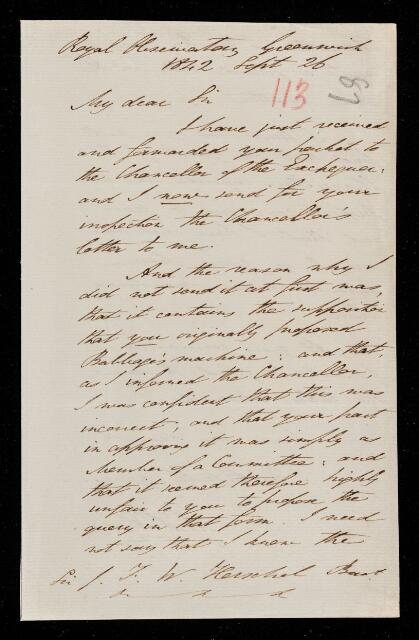 Royal Observatory Greenwich
1842 Sept 26
113
67
My dear Sir
I have just received
and forwarded your packet to
the Chancellor of the Exchequer:
and I now send for your
inspection the Chancellor's
letter to me.
And the reason why I
did not send it at first was,
that it contains the supposition
that you originally proposed
Babbage's machine: and that,
as I informed the Chancellor,
I was confident that this was
incorrect, and that your part
in approving it was simply as
Member of a Committee: and
that it seemed therefore highly
unfair to you to propose the
query in that form. I need
not say that I knew the
Sir J. F. W. Herschel Bart